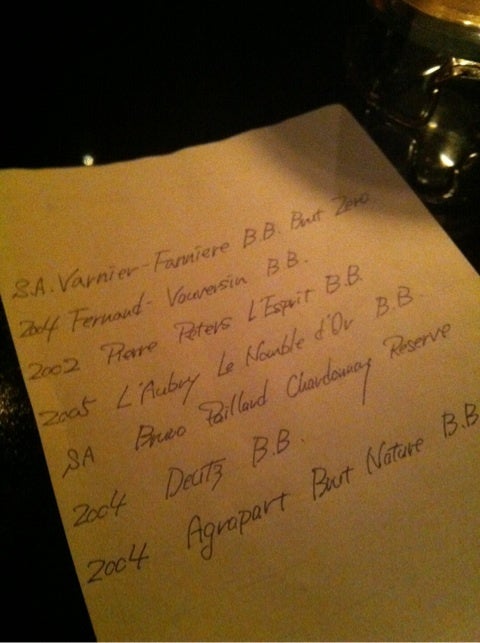 S.A. Varnier-Fanniere B.B. Brut Zero
2004 Fernaud-Vouversin B.B.
2002 Pierre Peters L'Esprit B.B.
2005 L'Aubry Le Nomble d'Or B.B.
SA Bruno Paillaud Chardonnay Reserve
2004 Deutz B.B.
2004 Agrapart Brut Nature B.B